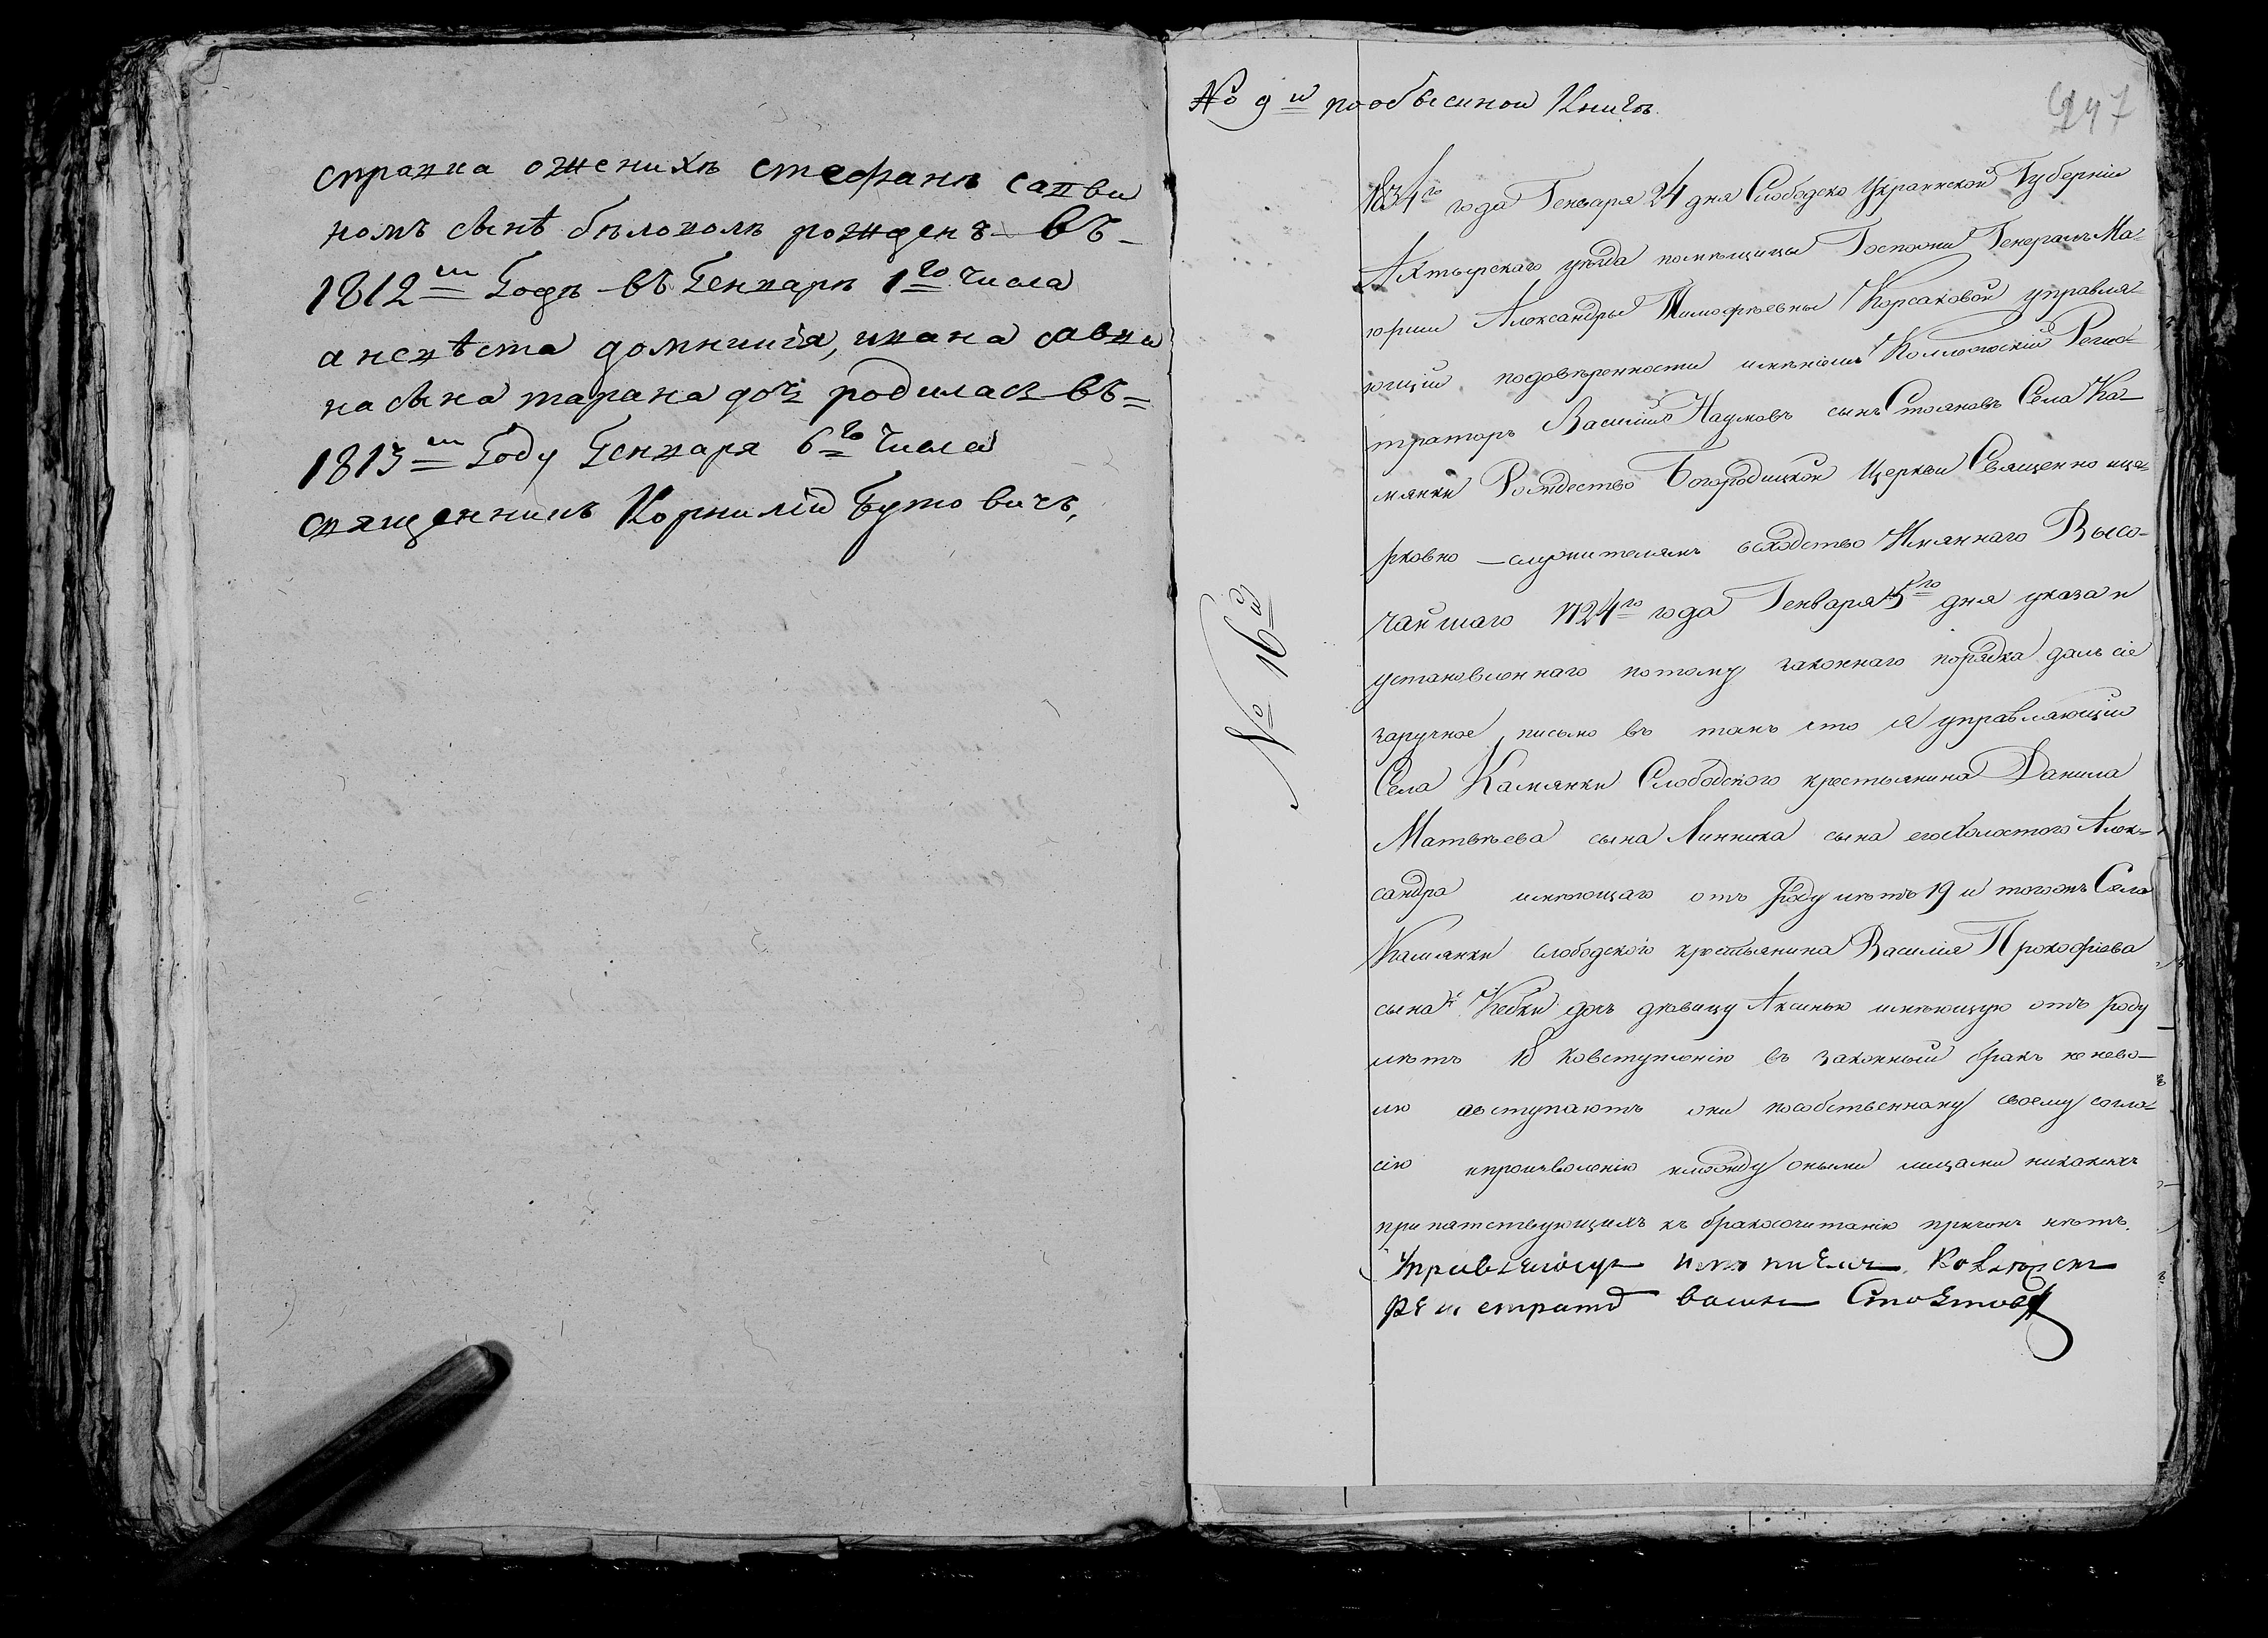 справка о женихѣ стефанѣ савви
номъ сынѣ бѣлополѣ рожденъ въ
1812м Годѣ въ Генварѣ 1го Числа
а невѣста домникия, ивана савви
на сына тарана дочь родилась въ
1813м Году Генваря 6го Числа
священникъ Корнилій Бутовичъ,
№ 9й по обыскной Книгѣ
247
1834го года Генваря 24 дня Слободско Украинской Губерніи
Ахтырскаго уѣзда помѣщицы Госпожи Генералъ Ма-
іорши Александры Тимофѣевны Корсаковой управля-
ющій подовѣренности имѣніемъ Коллежскій Реги-
траторъ Василій Наумовъ сынъ Стояновъ Села Ка-
мянки Рождество Богородицкой Церкви Священно це-
рковно -служителямъ всходство Имяннаго Высо-
чайшаго 1724го года Генваря 5го дня указа и
установленнаго потому законнаго порядка далъ сіе
заручное письмо въ томъ что я управляющій
Села Камянки Слободского крестьянина Данила
Матвѣева сына Линника сына его холостого Алек-
сандра имѣющаго отъ роду лѣтъ 19 и тогожъ Села
Камянки слободского крестьянина Василія Прокофіева
сына Кебки дочь дѣвицу Аксинью имѣющую отъ роду
лѣтъ 18 ковступленію въ законный бракъ не нево-
лю авступаютъ они пособственному своему согла-
сію ипроизволенію имежду оными лицами никакихъ
припятствующихъ къ бракосочитанію причинъ нѣтъ.
№ 16й